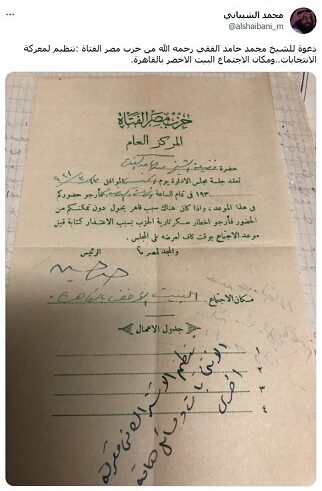 محمد الشيباني
@alshaibani_m
دعوة للشيخ محمد حامد الفقي رحمه الله من حزب مصر الفتاة :تنظيم لمعركة
الانتخابات..ومكان الاجتماع البيت الاخضر بالقاهرة.
حزب مصر الفتاة
المركز العام
حضرة فضيلة الشيخ محمد حامد الفقي
تنعقد جلسة مجلس الادارة يوم الموافق
١٩٣ في تمام الساعة فأرجو حضوركم
في هذا الموعد، واذا كان هناك سبب قاهر يحول دون تمكنكم من
الحضور فأرجو اخطار سكرتارية الحزب بسبب الاعتذار كتابة قبل
موعد الاجتماع بوقت كاف لعرضه على المجلس.
والمجد لمصر الرئيس
مكان الاجتماع البيت الأخضر بالقاهرة
جدول الاعمال
١
٢
٣
٤
تنظيم الاشتراك في معركة
الانتخابات ومسائل هامة
أخرى